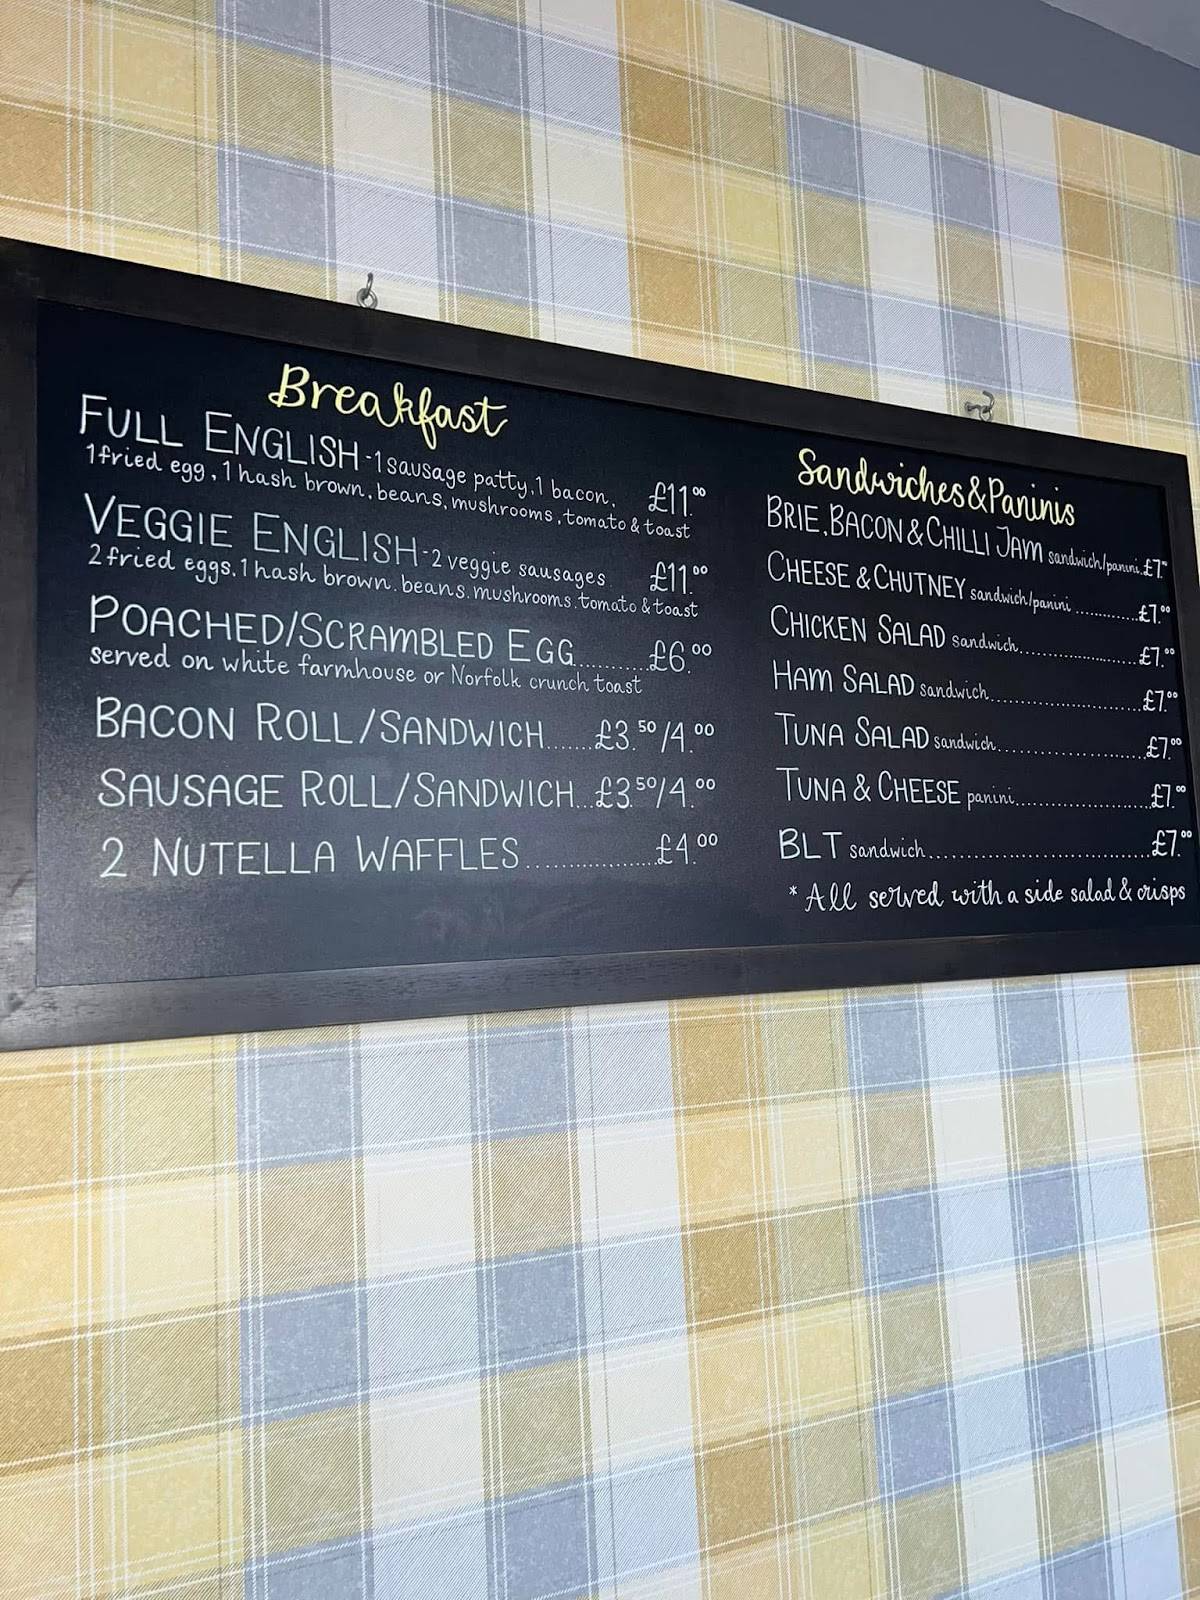 Breakfast
FULL ENGLISH - 1 sausage patty, 1 bacon, £11.00
1 fried egg, 1 hash brown, beans, mushrooms, tomato & toast
VEGGIE ENGLISH - 2 veggie sausages £11.00
2 fried eggs, 1 hash brown, beans, mushrooms, tomato & toast
POACHED/SCRAMBLED EGG..........£6.00
served on white farmhouse or Norfolk crunch toast
BACON ROLL/SANDWICH.......£3.50/4.00
SAUSAGE ROLL/SANDWICH...£3.50/4.00
2 NUTELLA WAFFLES...................£4.00
Sandwiches & Paninis
BRIE, BACON & CHILLI JAM sandwich/panini.£7.00
CHEESE & CHUTNEY sandwich/panini..............£7.00
CHICKEN SALAD sandwich.........................£7.00
HAM SALAD sandwich...............................£7.00
TUNA SALAD sandwich..............................£7.00
TUNA & CHEESE panini.............................£7.00
BLT sandwich..........................................£7.00
* All served with a side salad & crisps